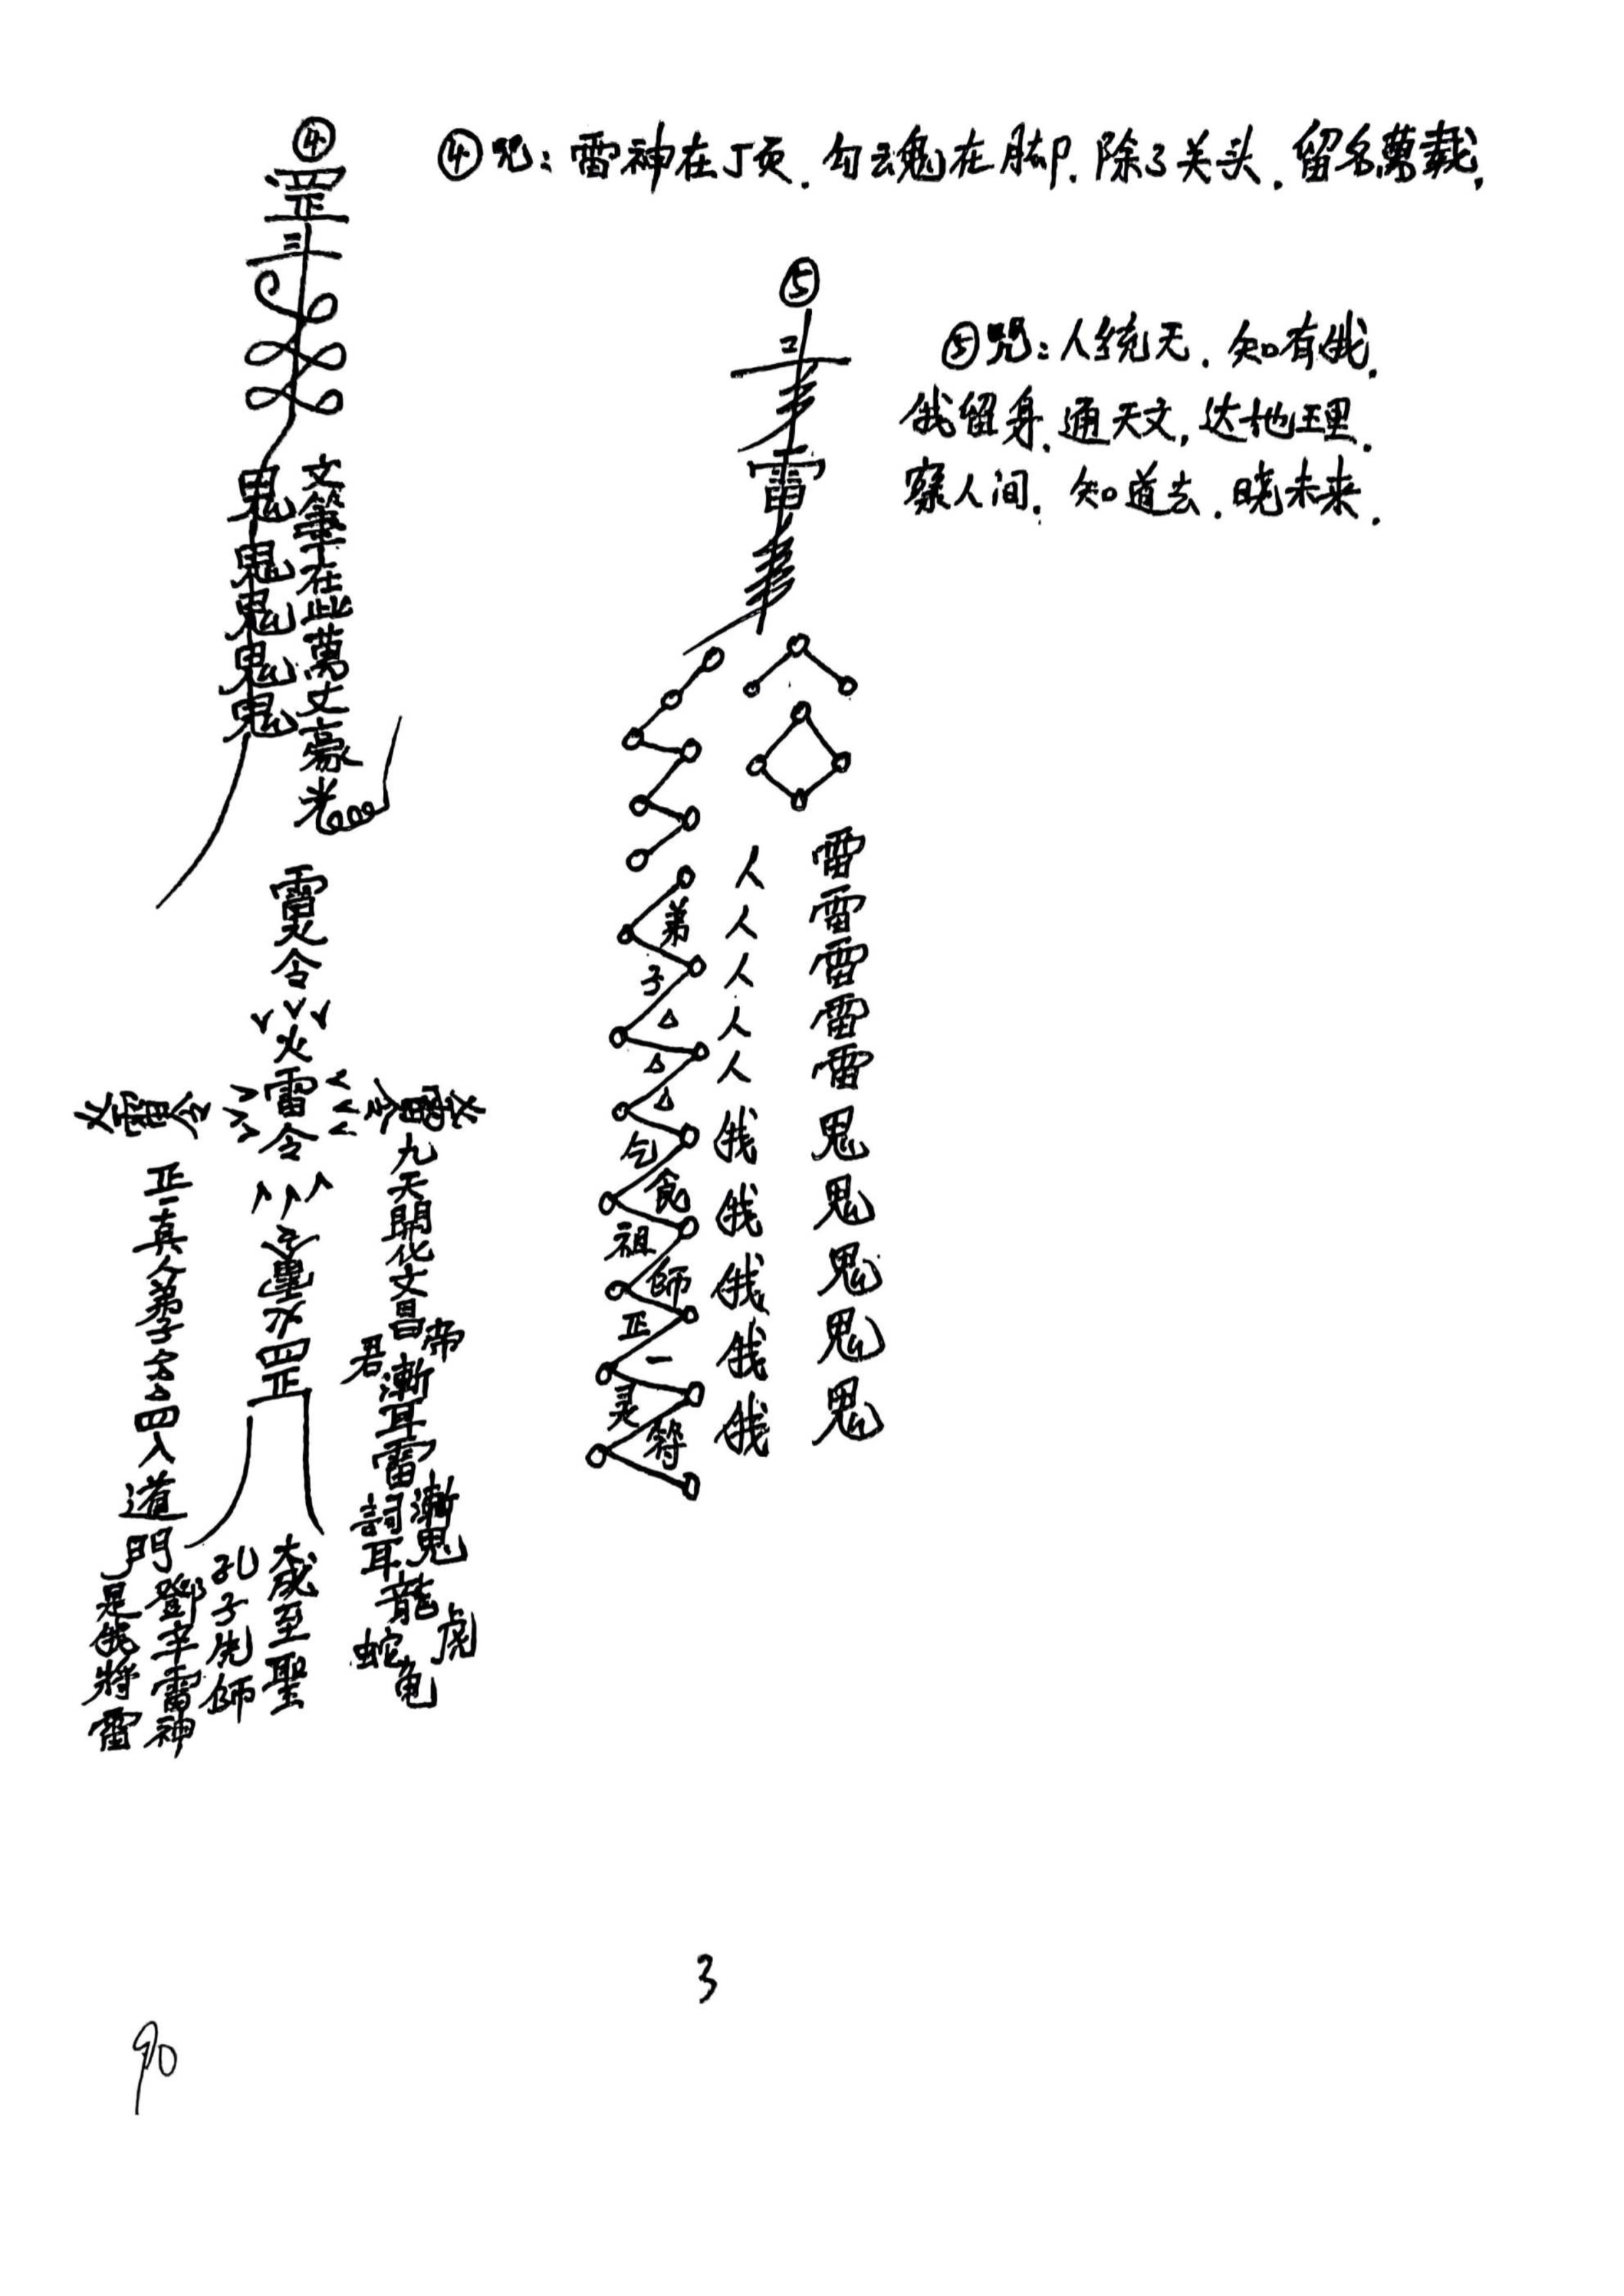 ④咒：雷神在顶．勾魂在脚．除了关头．留名萬载．
④
罡
斗
鬼鬼鬼鬼鬼
文筆在此萬丈豪光
令
火
雷
令
罡
九天開化文昌
帝君
漸耳雷
漸鬼
詞耳
龍
虎
蛇
龟
正一真人弟子
四入道門
鄧辛雷神
是俄將雷
大成至聖
孔子先師
⑤
雷
⑤咒：人统天．知有俄．
俄留身．通天文，达地理．
察人间．知道去．晓未来．
弟子△△△乞食祖師正一灵符
人人人人人俄俄俄俄俄
雷雷雷雷雷鬼鬼鬼鬼鬼
3
90